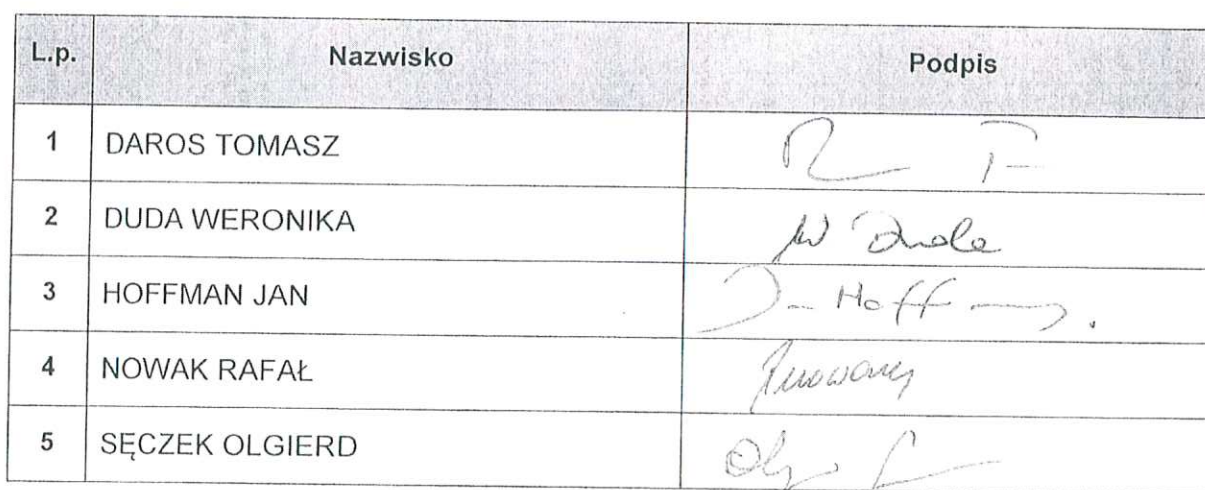 L.p. Nazwisko Podpis
1 DAROS TOMASZ
2 DUDA WERONIKA W Duda
3 HOFFMAN JAN J- Hoff
4 NOWAK RAFAŁ
5 SĘCZEK OLGIERD